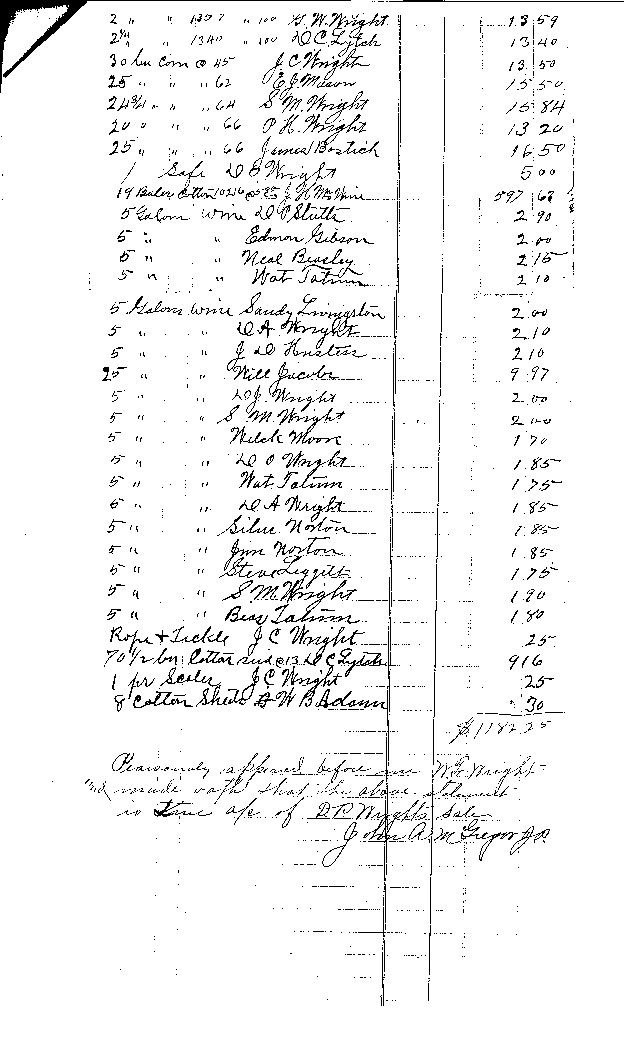 2 " " 1357 " 100 G. W. Wright 13 59
2¼ " " 1340 " 100 D C Lytch 13 40
30 bu Corn @ 45 J C Wright 13 50
25 " " " 62 E J Mason 15 50
24¾ " " " 64 S M. Wright 15 84
20 " " " 66 P H. Wright 13 20
25 " " " 66 James Bostick 16 50
1 Safe D P Wright 5 00
19 Bales Cotton J H 597 62
5 Galons Wine D P Stutts 2 90
5 " " Edmon Gibson 2 00
5 " " Neal Beasley 2 15
5 " " Wat Tatum 2 10
5 Galons Wine Sandy Livingston 2 00
5 " " D A Wright 2 10
5 " " J D 2 10
25 " " Will Jacobs 9 97
5 " " D J. Wright 2 00
5 " " S M. Wright 2 00
5 " " Welch Moore 1 70
5 " " D O Wright 1 85
5 " " Wat. Tatum 1 75
5 " " D A Wright 1 85
5 " " Norton 1 85
5 " " Jim Norton 1 85
5 " " Steve Leggett 1 75
5 " " S M. Wright 1 90
5 " " Tatum 1 80
Rope & Tickle J C Wright 25
70 1/2 bu. Cotton seed @ 13 D C Lytch 9 16
1 pr Scales J C Wright 25
8 Cotton Sheets W B Adams 30
$ 1182 25
Peasonaly appeared before me Wright
and made oath that the above statement
is true a/c of D P. Wrights Sale
John A McGregor J.P.